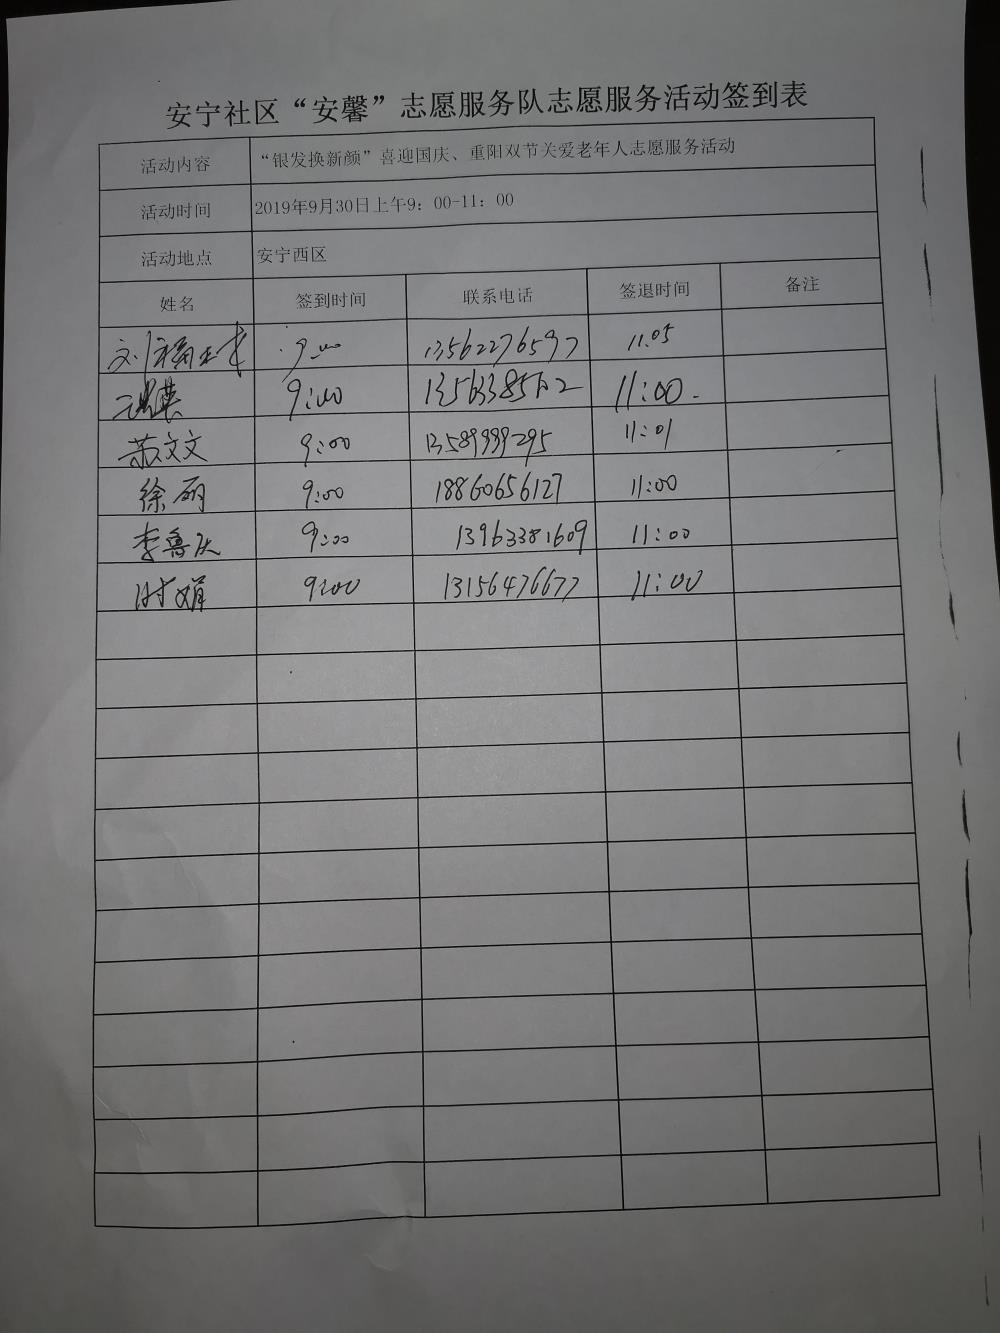 安宁社区“安馨”志愿服务队志愿服务活动签到表
活动内容 “银发换新颜”喜迎国庆、重阳双节关爱老年人志愿服务活动
活动时间 2019年9月30日上午9：00-11：00
活动地点 安宁西区
姓名 签到时间 联系电话 签退时间 备注
9:00 13562276597 11.05
9:00 11:00.
苏文文 9:00 13589999295 11:01
徐丽 9:00 18860656127 11:00
李鲁庆 9:00 13963381609 11:00
时娟 9:00 13156476677 11:00